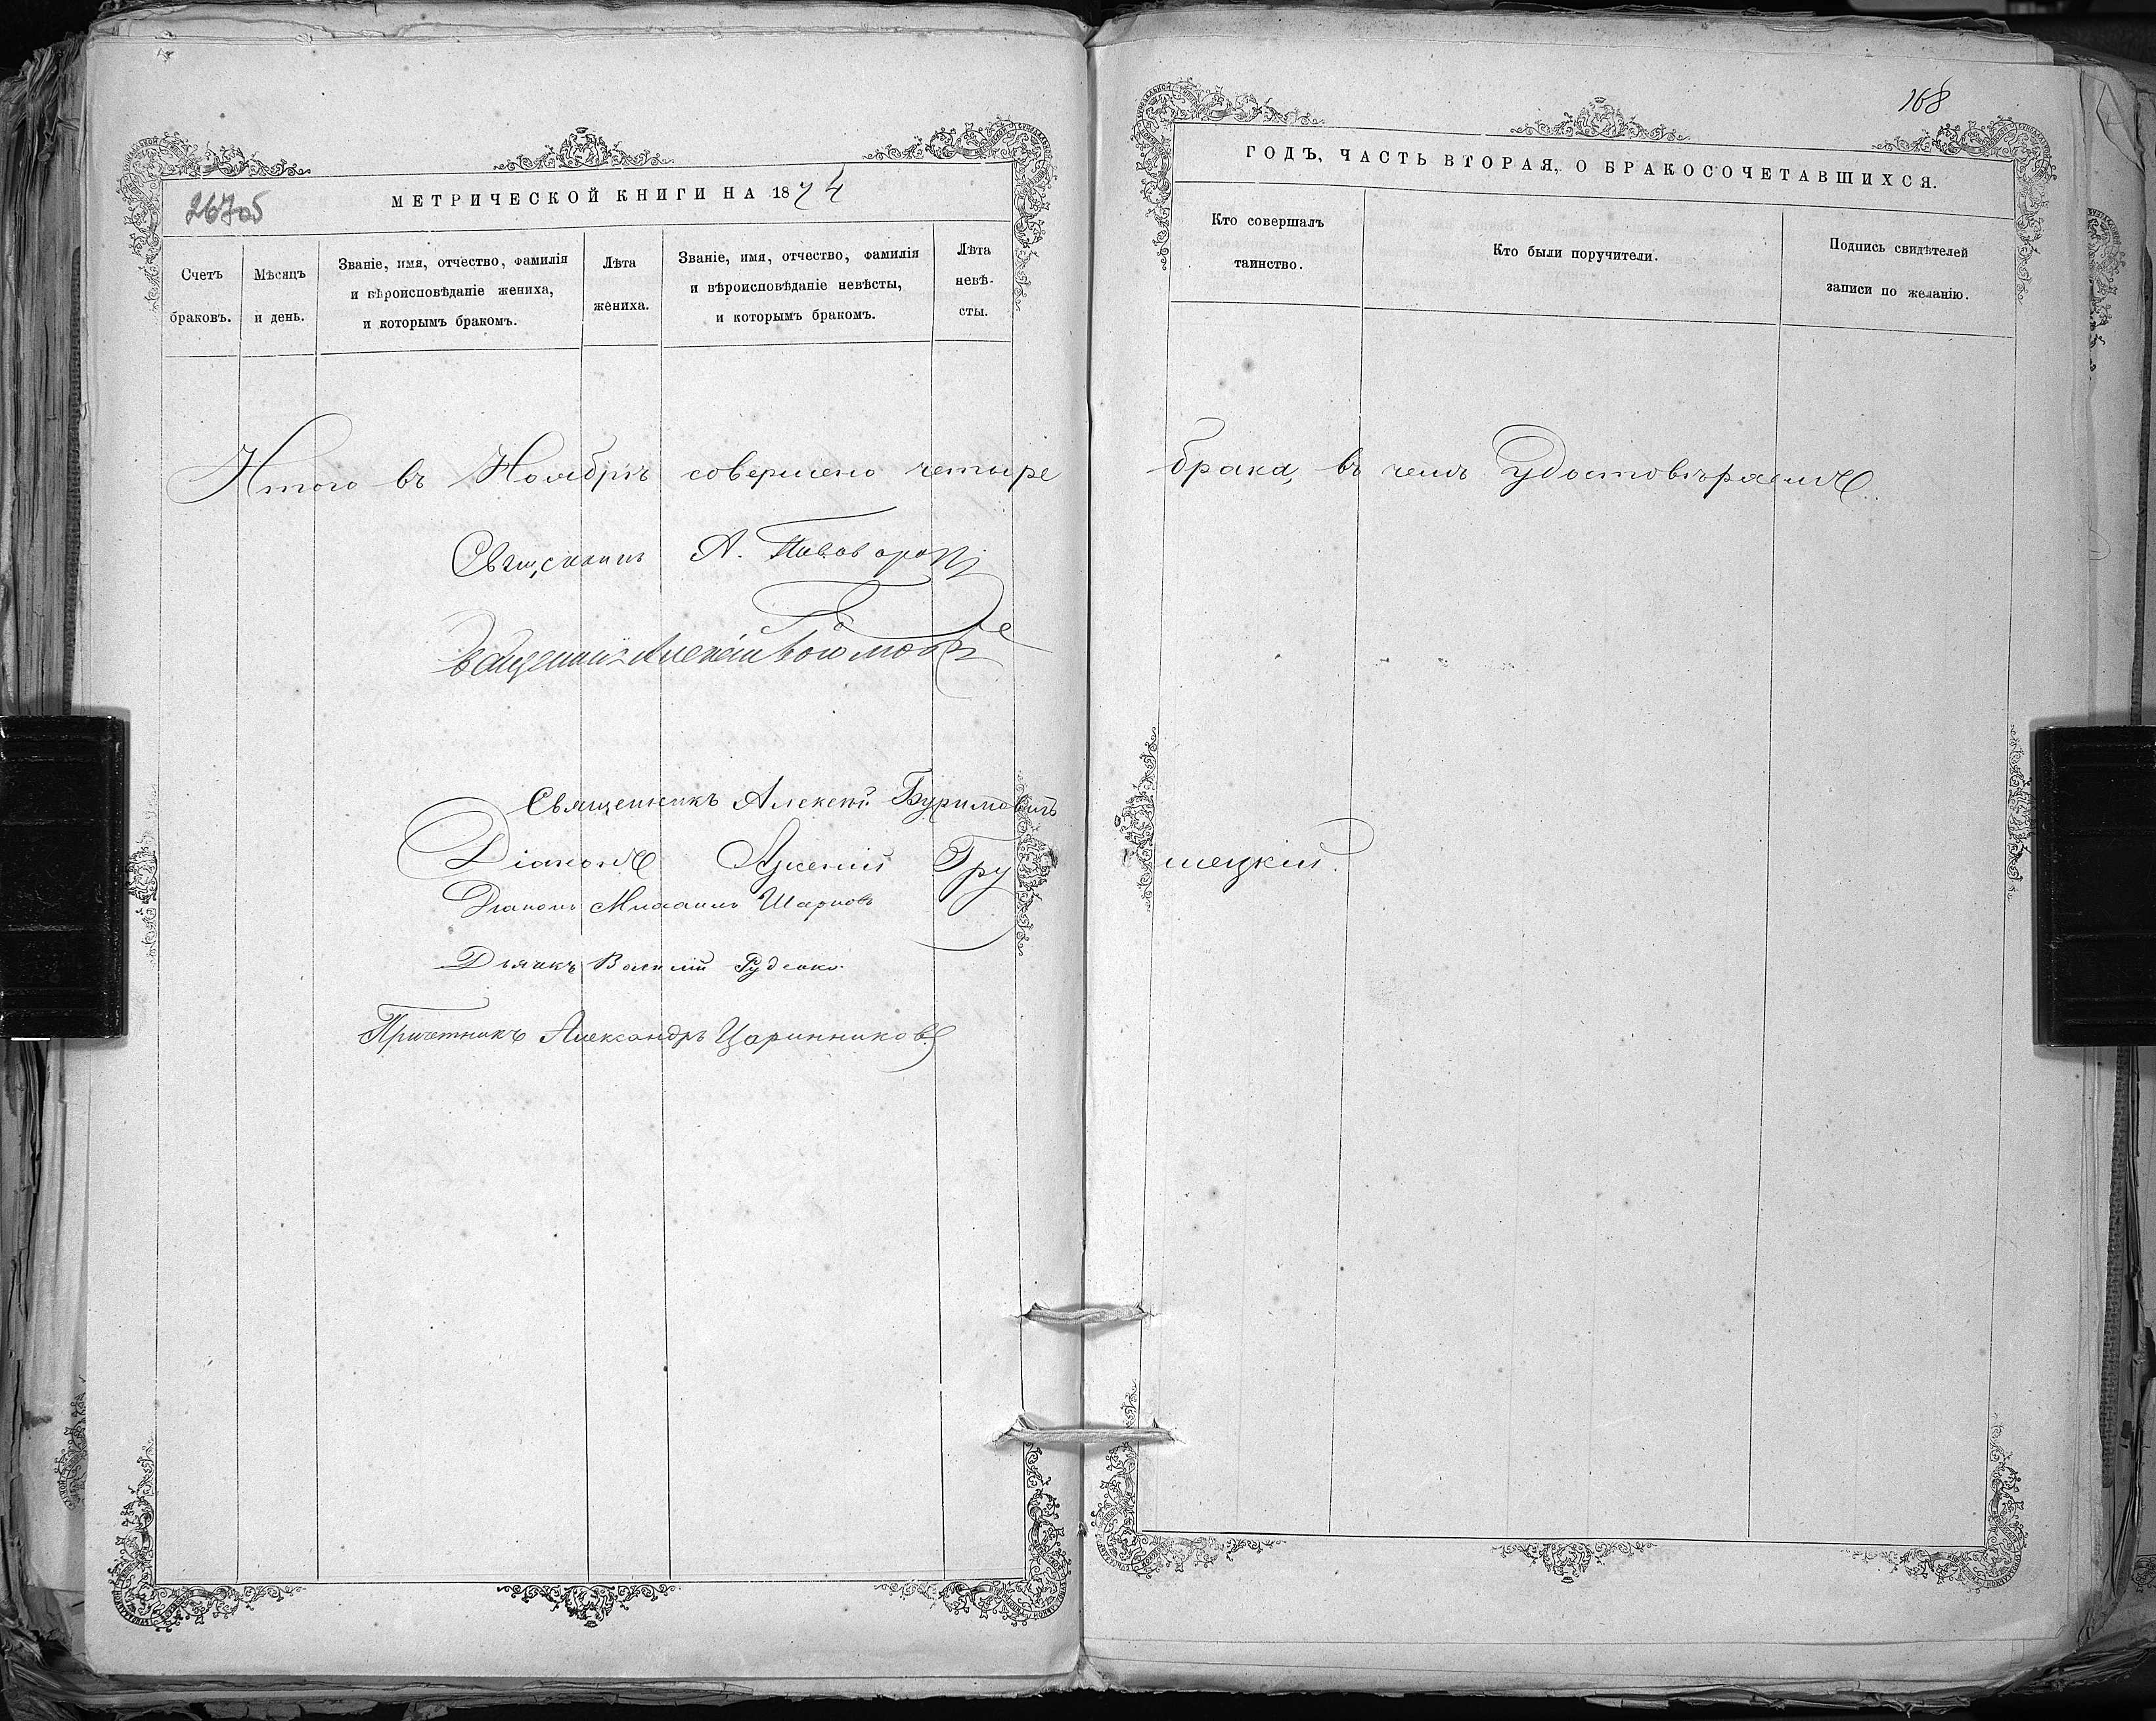 267об
МЕТРИЧЕСКОЙ КНИГИ НА 1874
Счетъ браковъ.
Мѣсяцъ и день.
Званіе, имя, отчество, фамилія и вѣроисповѣданіе жениха, и которымъ бракомъ.
Лѣта жениха.
Званіе, имя, отчество, фамилія и вѣроисповѣданіе невѣсты, и которымъ бракомъ.
Лѣта невѣ- сты.
Итого въ Ноябрѣ совершено четыре
Священникъ А.
Священникъ Алексій
Священникъ Алексій Буримовичъ
Діаконъ Гру
Діаконъ Михаилъ
Дьячкъ Василій Руденко.
Причетникъ Александръ Царинниковъ
168
ГОДЪ, ЧАСТЬ ВТОРАЯ, О БРАКОСОЧЕТАВШИХСЯ.
Кто совершалъ таинство.
Кто были поручители.
Подпись свидѣтелей записи по желанію.
брака, въ чемъ удостовѣряемъ
шецкій.